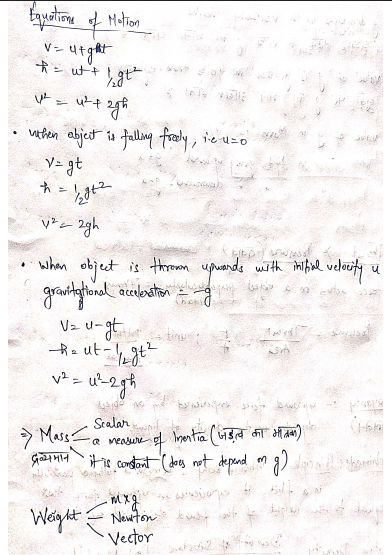 Equations of Motion
v = u + gt
h = ut + 1/2 gt²
v² = u² + 2gh
• when object is falling freely, i.e u=0
v = gt
h = 1/2 gt²
v² = 2gh
• When object is thrown upwards with initial velocity u
gravitational acceleration = -g
v = u - gt
h = ut - 1/2 gt²
v² = u² - 2gh
⇒ Mass
द्रव्यमान
Scalar
a measure of Inertia (जड़त्व का मात्रक)
it is constant (does not depend on g)
Weight
m×g
Newton
Vector